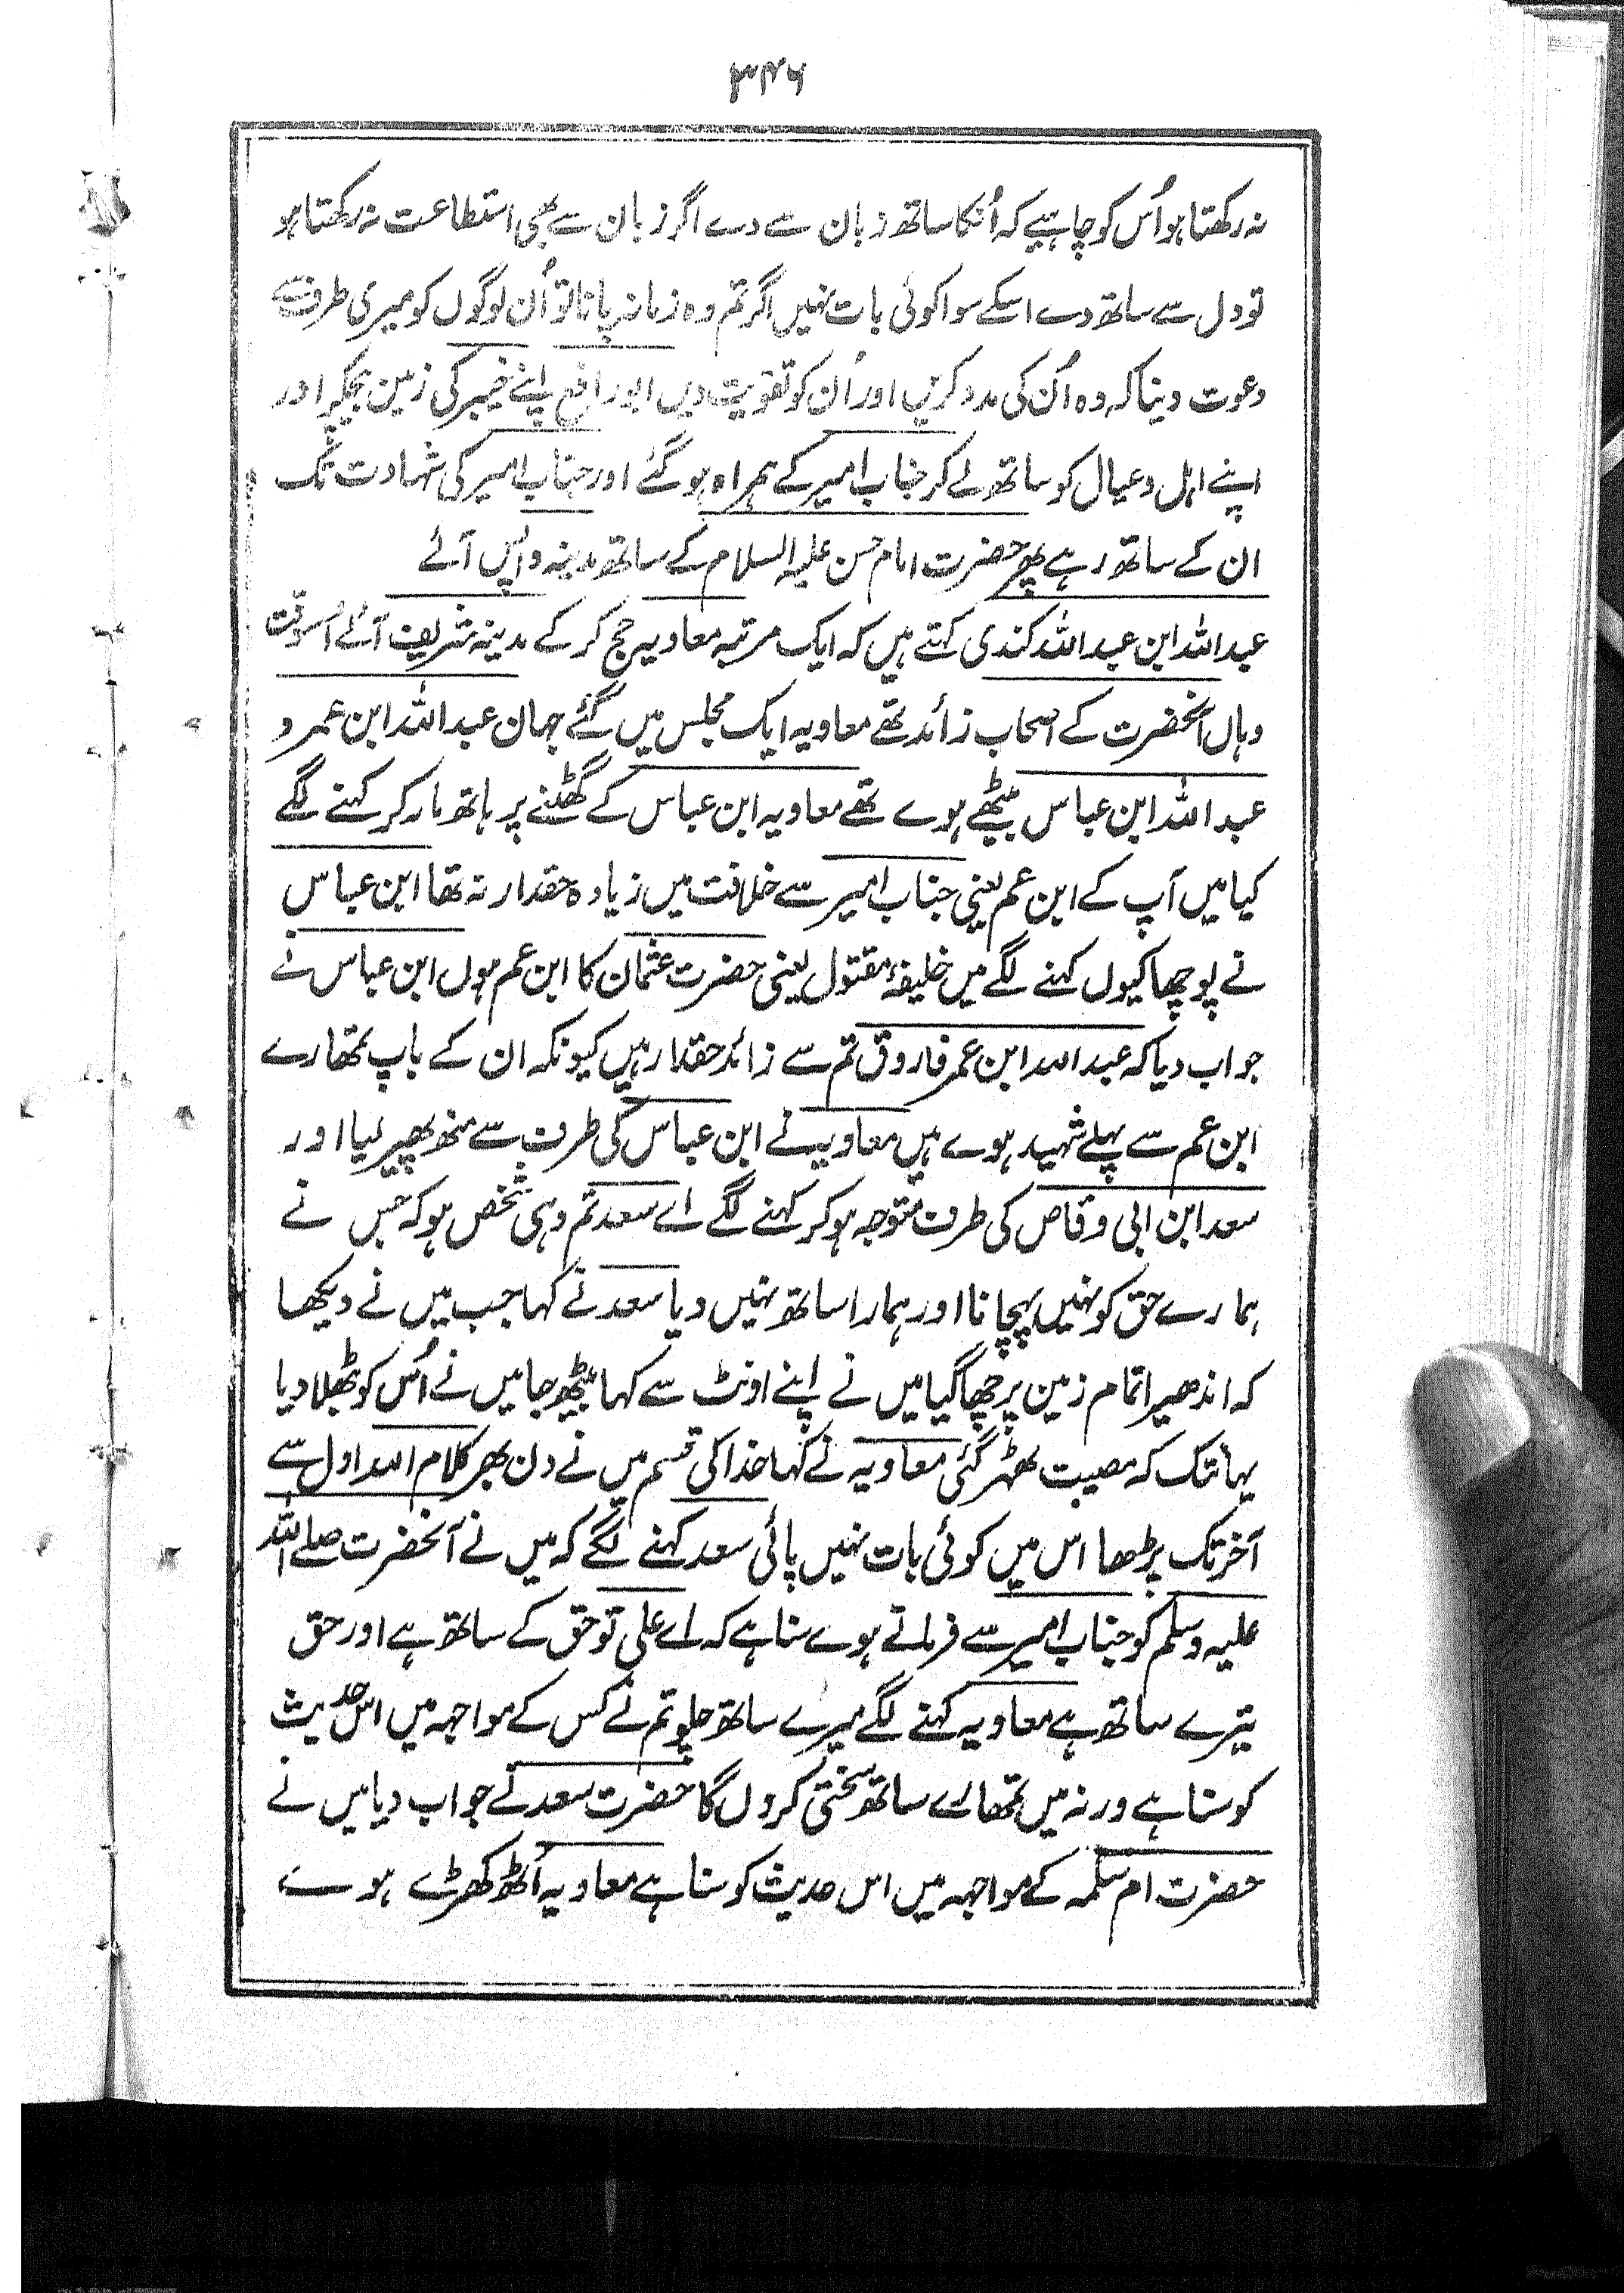 ۳۴۶
نہ رکھتا ہو اُس کو چاہیے کہ اُنکا ساتھ زبان سے دے اگر زبان سے بھی استطاعت نہ رکھتا ہو
تو دل سے ساتھ دے اسکے سوا کوئی بات نہیں اگر تم وہ زمانہ پانا تو اُن لوگوں کو میری طرف سے
دعوت دینا کہ وہ اُن کی مدد کریں اور اُن کو تقویت دیں ابو رافع اپنے خیبر کی زمین بیچکر اور
اپنے اہل و عیال کو ساتھ لے کر جناب امیر کے ہمراہ ہو گئے اور جناب امیر کی شہادت تک
ان کے ساتھ رہے پھر حضرت امام حسن علیہ السلام کے ساتھ مدینہ واپس آئے
عبد اللہ ابن عبد اللہ کندی کہتے ہیں کہ ایک مرتبہ معاویہ حج کر کے مدینہ شریف آئے اُسوقت
وہاں آنحضرت کے اصحاب زائد تھے معاویہ ایک مجلس میں گئے جہان عبد اللہ ابن عمر و
عبد اللہ ابن عباس بیٹھے ہوے تھے معاویہ ابن عباس کے گھٹنے پر ہاتھ مار کر کہنے لگے
کیا میں آپ کے ابن عم یعنی جناب امیر سے خلافت میں زیادہ حقدار نہ تھا ابن عباس
نے پوچھا کیوں کہنے لگے میں خلیفۂ مقتول یعنی حضرت عثمان کا ابن عم ہوں ابن عباس نے
جواب دیا کہ عبد اللہ ابن عمر فاروق تم سے زائد حقدار ہیں کیونکہ ان کے باپ تمھارے
ابن عم سے پہلے شہید ہوے ہیں معاویہ نے ابن عباس کی طرف سے منھ پھیر لیا اور
سعد ابن ابی وقاص کی طرف متوجہ ہو کر کہنے لگے اے سعد تم وہی شخص ہو کہ جس نے
ہمارے حق کو نہیں پہچانا اور ہمارا ساتھ نہیں دیا سعد نے کہا جب میں نے دیکھا
کہ اندھیرا تمام زمین پر چھا گیا میں نے اپنے اونٹ سے کہا بیٹھ جا میں نے اُس کو بٹھلا دیا
یہانتک کہ مصیبت ٹھہر گئی معاویہ نے کہا خدا کی قسم میں نے دن بھر کلام اللہ اول سے
آخر تک پڑھا اس میں کوئی بات نہیں پائی سعد کہنے لگے کہ میں نے آنحضرت صلے اللہ
علیہ وسلم کو جناب امیر سے فرماتے ہوے سنا ہے کہ اے علی تو حق کے ساتھ ہے اور حق
تیرے ساتھ ہے معاویہ کہنے لگے میرے ساتھ چلو تم نے کس کے مواجہہ میں اس حدیث
کو سنا ہے ورنہ میں تمھارے ساتھ سختی کروں گا حضرت سعد نے جواب دیا میں نے
حضرت ام سلمہ کے مواجہہ میں اس حدیث کو سنا ہے معاویہ اُٹھ کھڑے ہوے